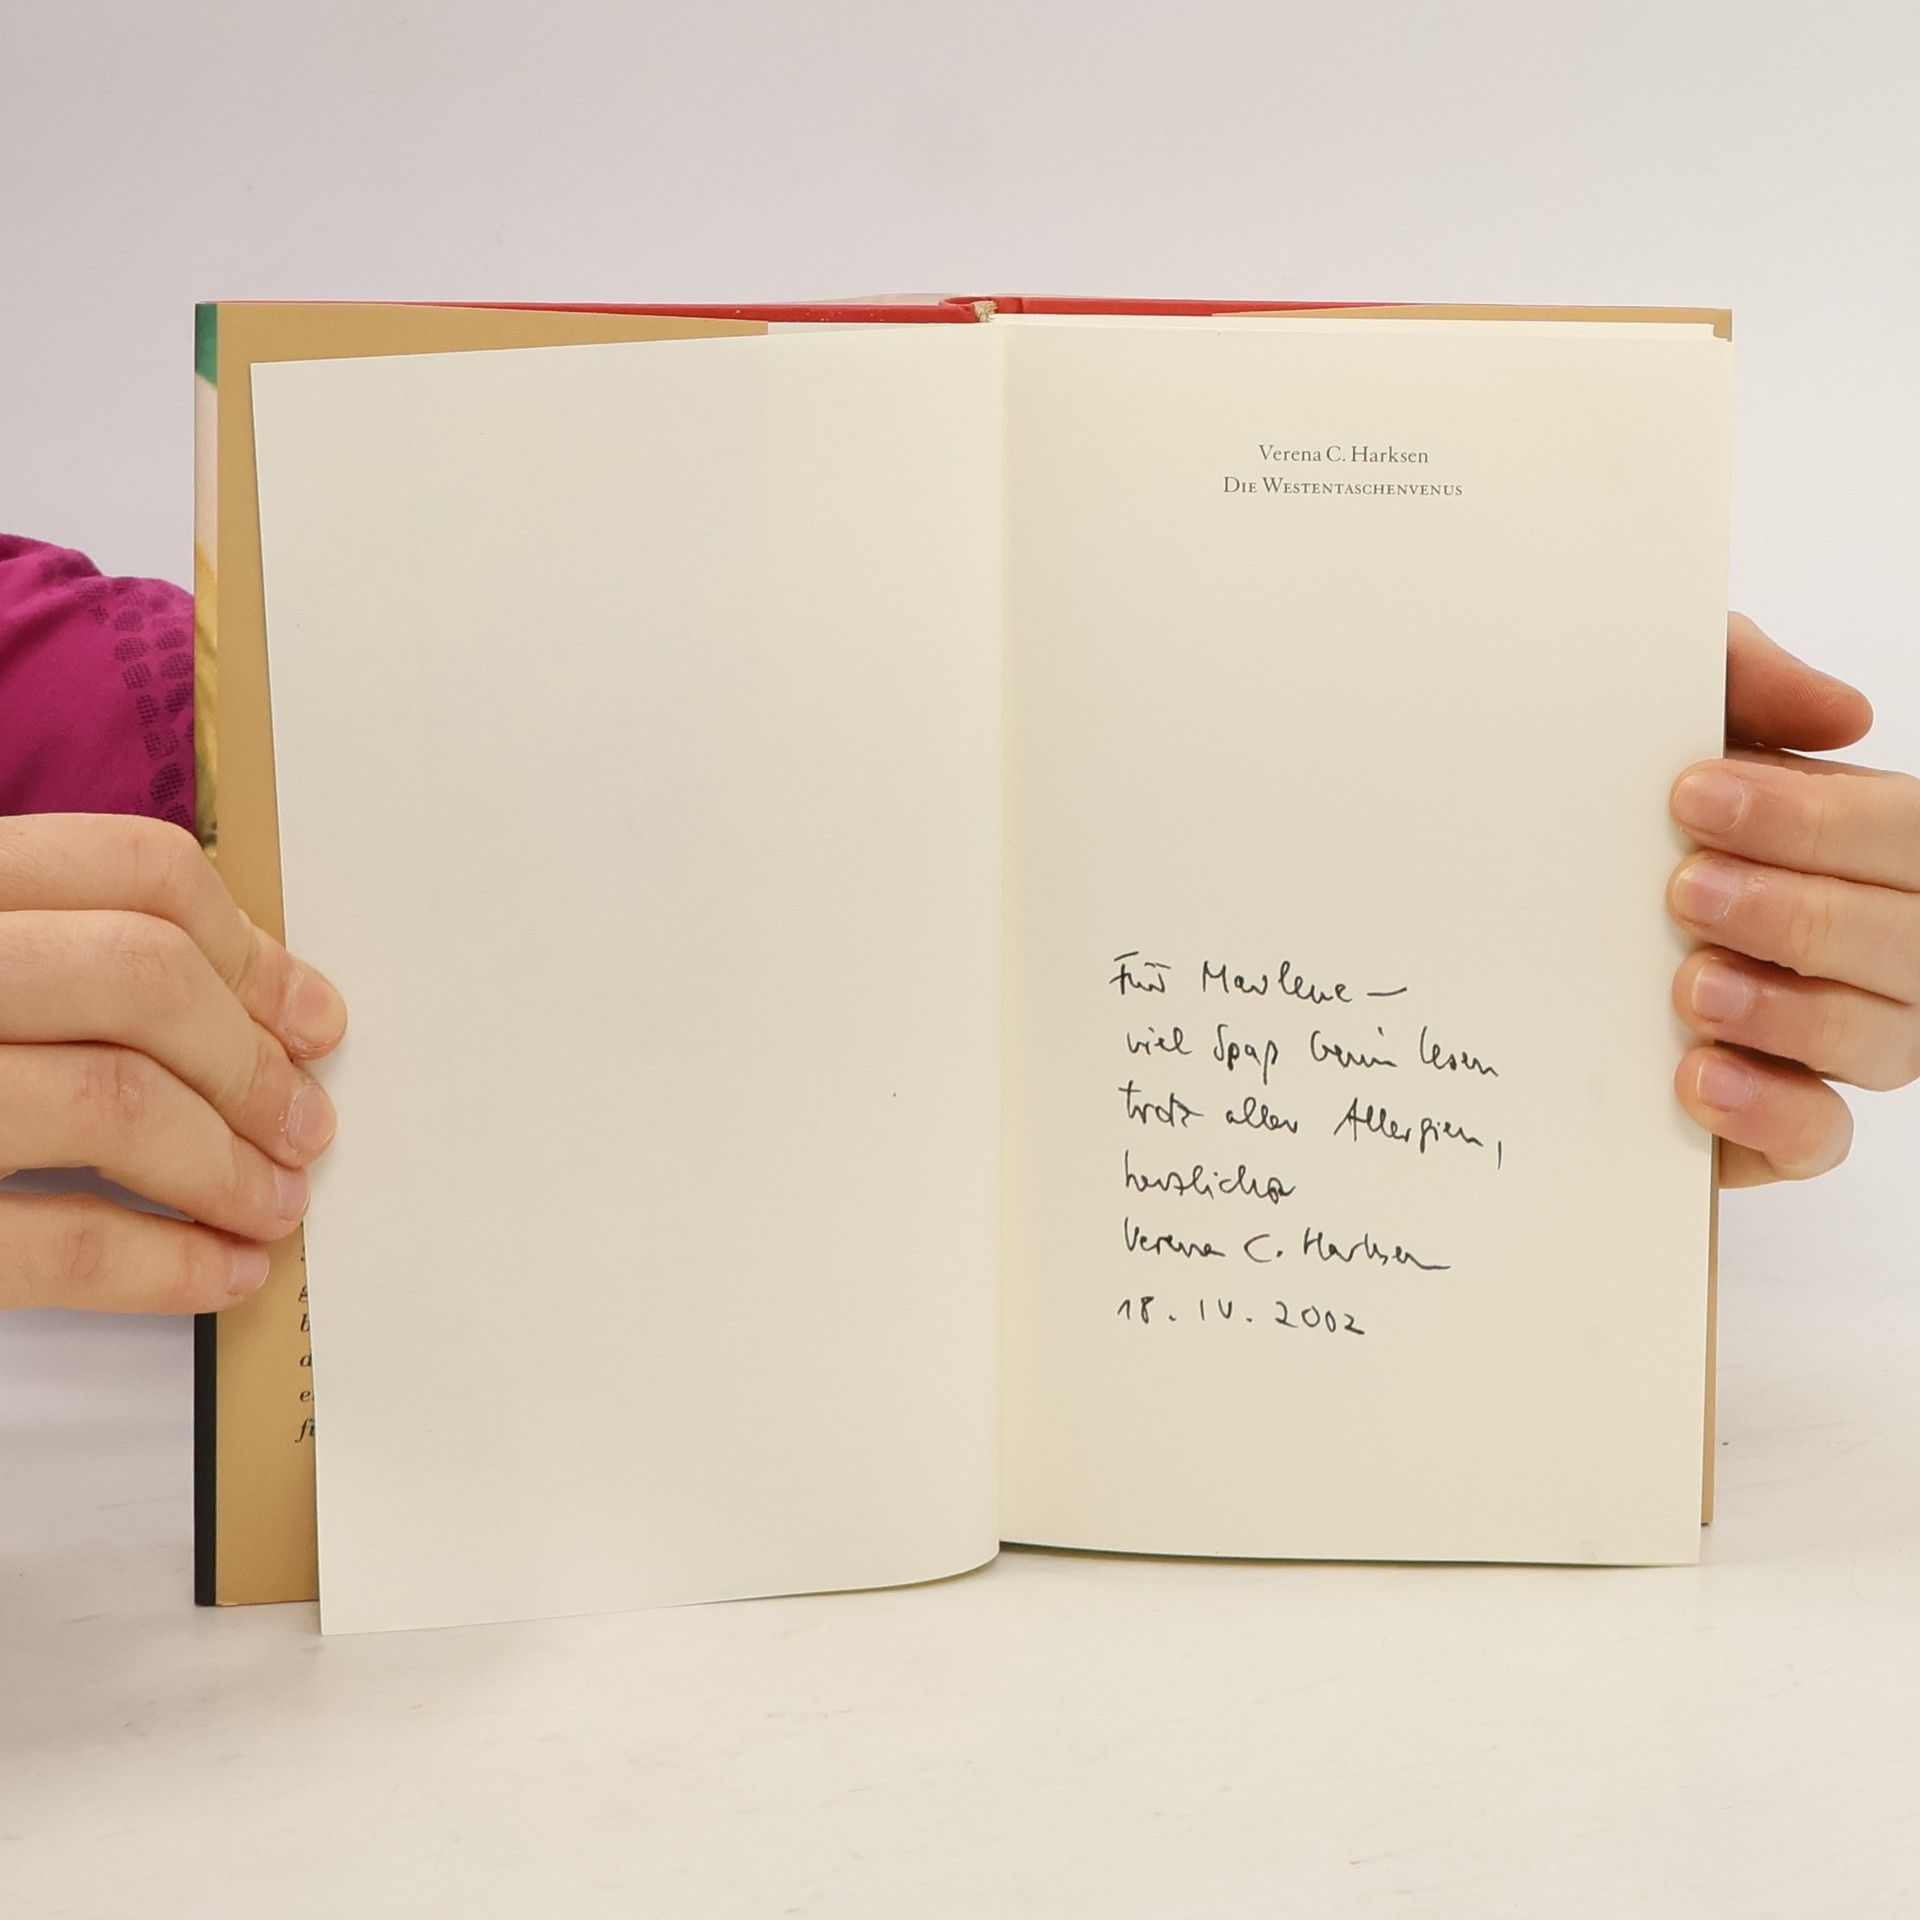 Verena C. Harksen
DIE WESTENTASCHENVENUS
Für Marlene –
viel Spaß beim Lesen
trotz aller Allergien,
herzlichst
Verena C. Harksen
18. IV. 2002